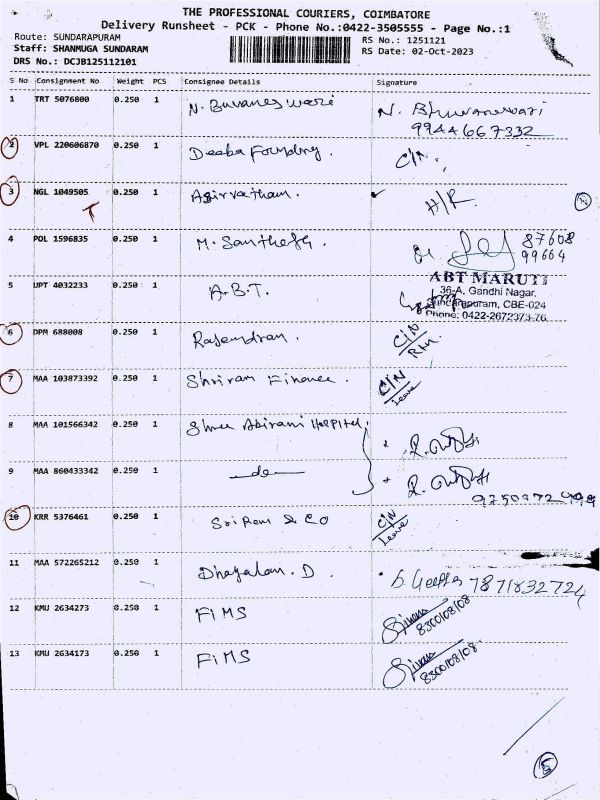 THE PROFESSIONAL COURIERS, COIMBATORE
Delivery Runsheet - PCK - Phone No.:0422-3505555 - Page No.:1
Route: SUNDARAPURAM
RS No.: 1251121
Staff: SHANMUGA SUNDARAM
RS Date: 02-Oct-2023
DRS No.: DCJB125112101
S No Consignment No Weight PCS Consignee Details Signature
1 TRT 5076800 0.250 1 N. Buvaneswari N. Bhuvaneswari
9944667332
2 VPL 220606870 0.250 1 Deeba Foundry. C/N.
3 NGL 1049505 0.250 1 Asirvatham. H/R
T
4 POL 1596835 0.250 1 M. Santhosh. 87608
99664
ABT MARUTI
5 UPT 4032233 0.250 1 A.B.T. 36-A, Gandhi Nagar,
Sundarapuram, CBE-024
Phone: 0422-2672373-76
6 DPM 688008 0.250 1 Rajendran. C/N
Rtn
7 MAA 103873392 0.250 1 Shriram Finance. C/N
Leave
8 MAA 101566342 0.250 1 Shree Abirami Hospital,
9 MAA 860433342 0.250 1 do
10 KRR 5376461 0.250 1 Sri Ram & CO C/N
Leave
11 MAA 572265212 0.250 1 Dhayalan. D. D. Geetha 7871832724
12 KMU 2634273 0.250 1 FIMS
8300108108
13 KMU 2634173 0.250 1 FIMS
8300108108.